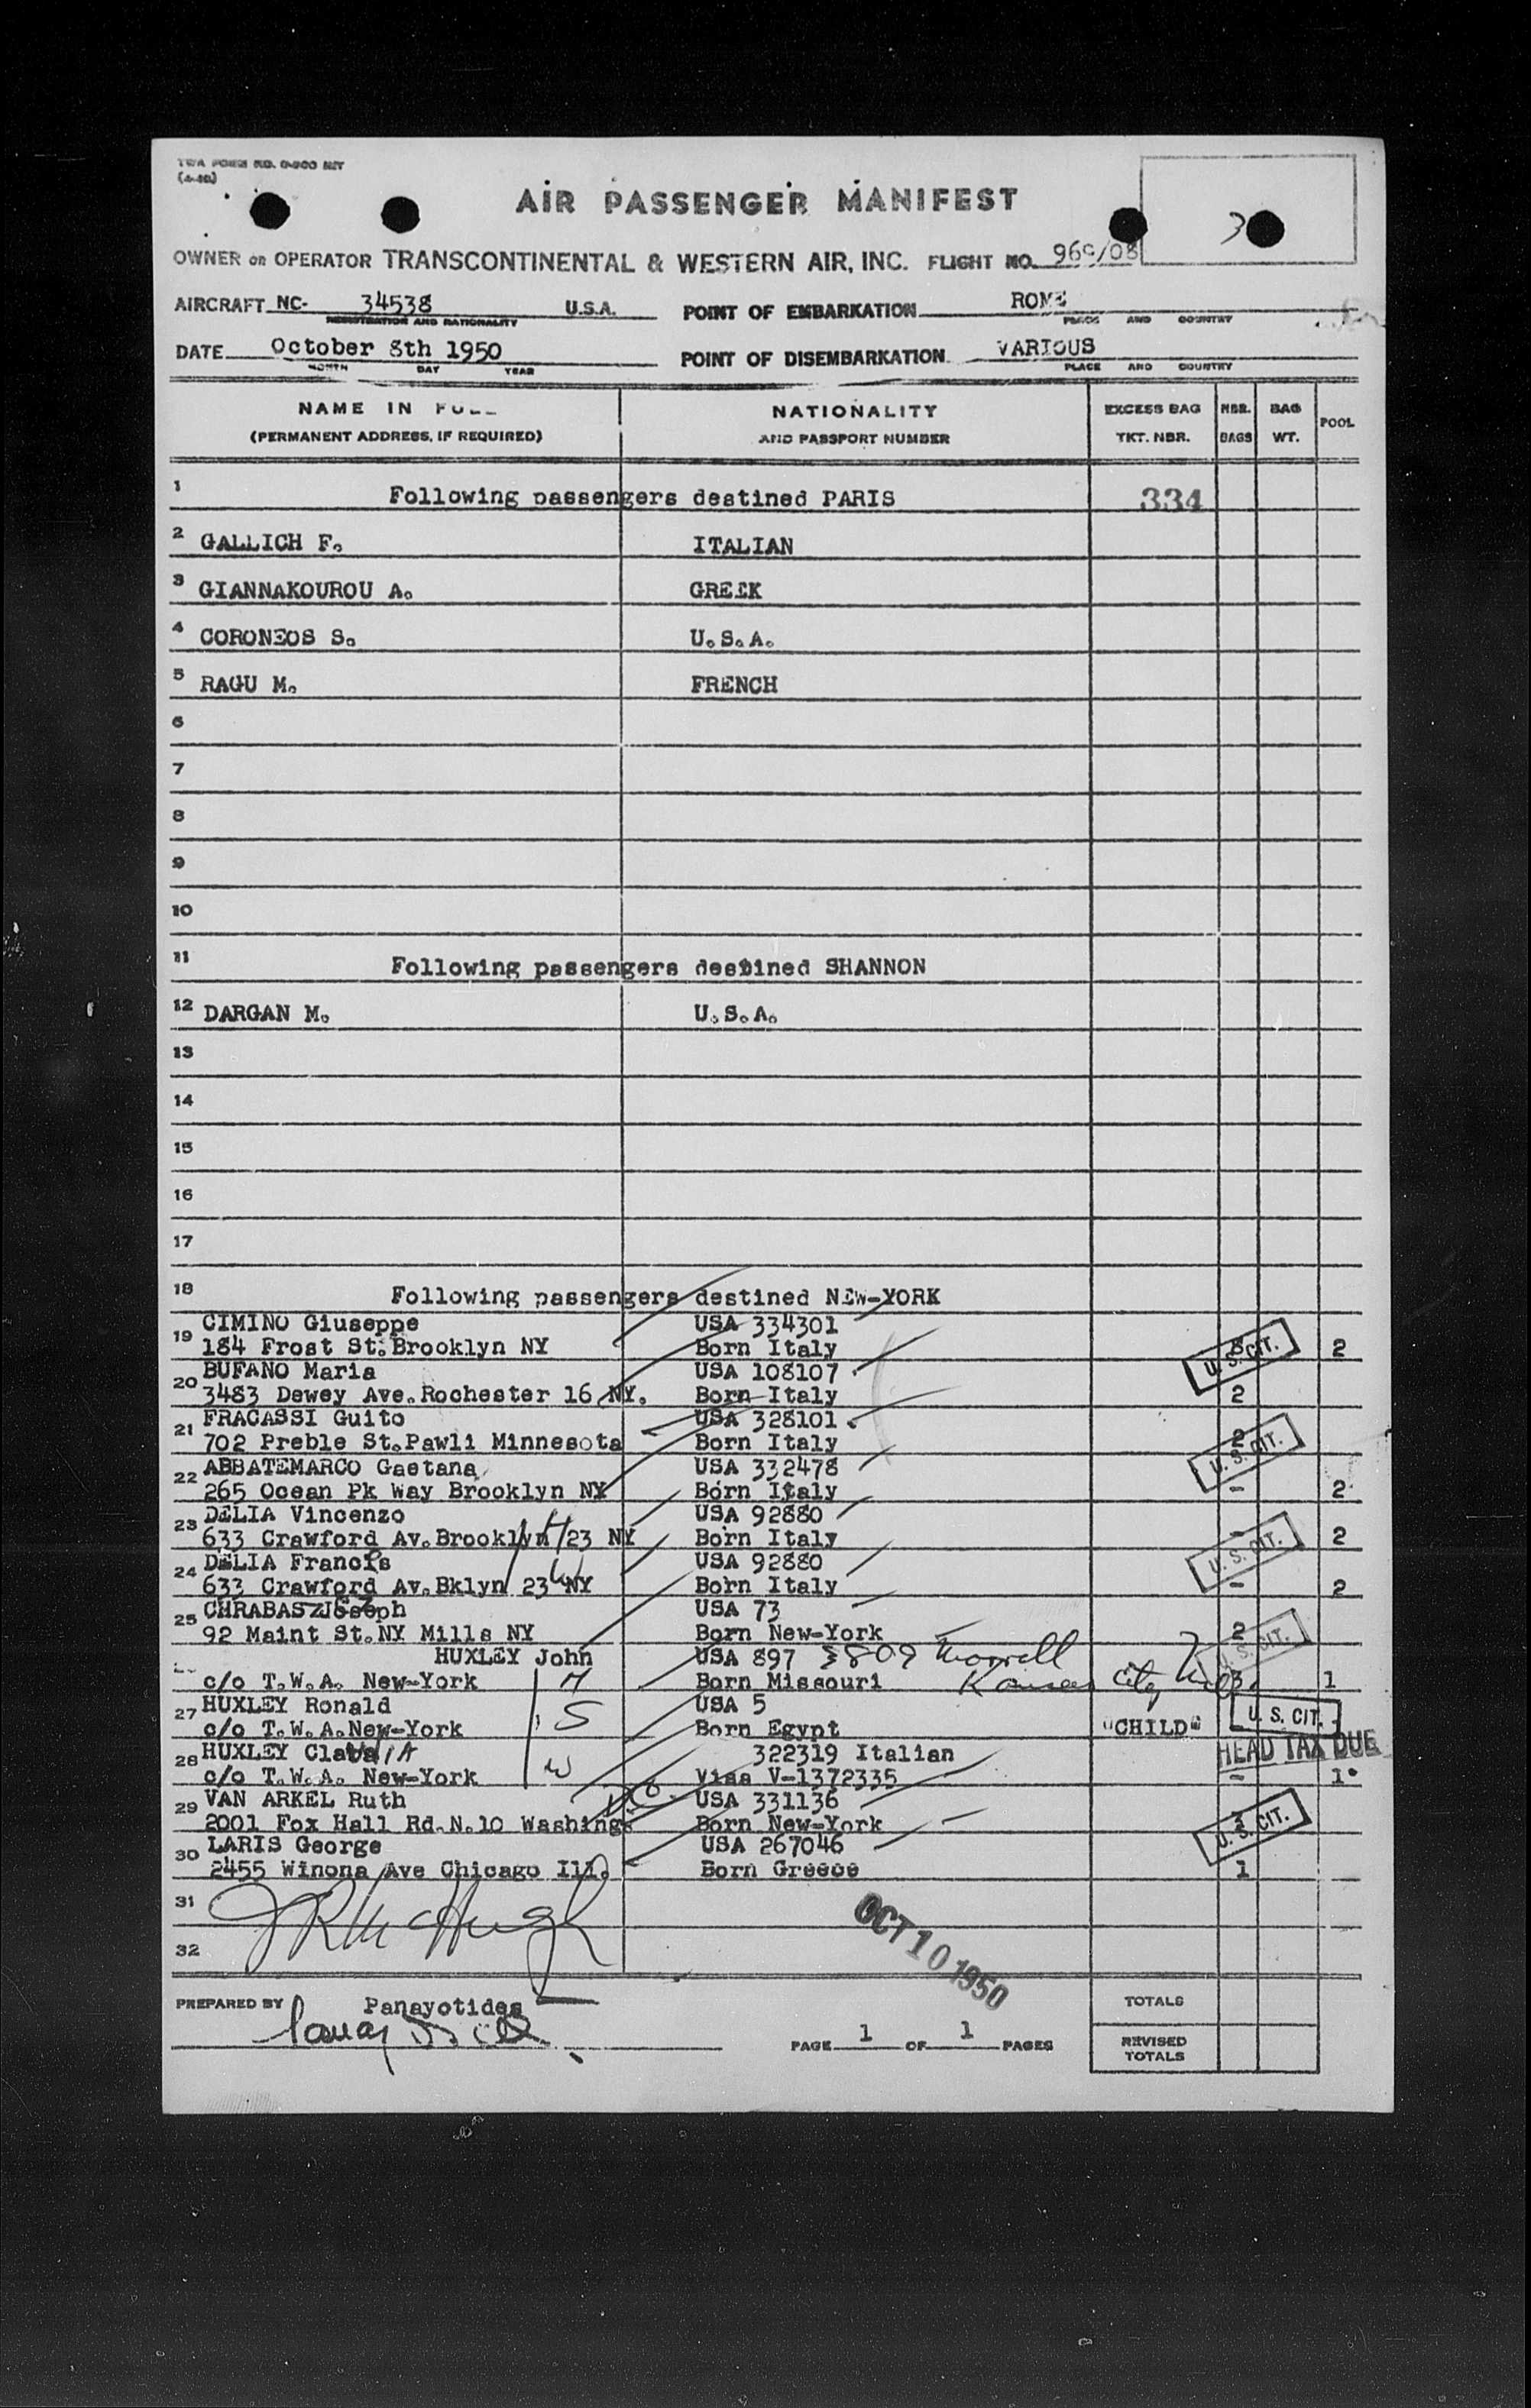 TWA FORM NO. 0-900 MIT
AIR PASSENGER MANIFEST
3
OWNER OR OPERATOR TRANSCONTINENTAL & WESTERN AIR, INC. FLIGHT NO. 969/08
AIRCRAFT NC- 34538 U.S.A. POINT OF EMBARKATION ROME
REGISTRATION AND NATIONALITY PLACE AND COUNTRY
DATE October 8th 1950 POINT OF DISEMBARKATION VARIOUS
MONTH DAY YEAR PLACE AND COUNTRY
NAME IN FULL NATIONALITY EXCESS BAG NBR. BAG POOL
(PERMANENT ADDRESS, IF REQUIRED) AND PASSPORT NUMBER TKT. NBR. BAGS WT.
1 Following passengers destined PARIS 334
2 GALLICH F. ITALIAN
3 GIANNAKOUROU A. GREEK
4 CORONEOS S. U.S.A.
5 RAGU M. FRENCH
6
7
8
9
10
11 Following passengers destined SHANNON
12 DARGAN M. U.S.A.
13
14
15
16
17
18 Following passengers destined NEW-YORK
CIMINO Giuseppe USA 334301
19 184 Frost St. Brooklyn NY Born Italy U. S. CIT. 2
BUFANO Maria USA 108107
20 3483 Dewey Ave. Rochester 16 NY. Born Italy 2
FRACASSI Guito USA 328101.
21 702 Preble St. Pawli Minnesota Born Italy 2 U. S. CIT.
ABBATEMARCO Gaetana USA 332478
22 265 Ocean Pk Way Brooklyn NY Born Italy - 2
DELIA Vincenzo USA 92880
23 633 Crawford Av. Brooklyn 23 NY H Born Italy - U. S. CIT. 2
DELIA Francis USA 92880
24 633 Crawford Av. Bklyn 23 NY W Born Italy - 2
CHRABASZ Joseph USA 73
25 92 Maint St. NY Mills NY Born New-York 2 U. S. CIT.
HUXLEY John USA 897 3809 Morrell
c/o T.W.A. New-York H Born Missouri Kansas City, Mo. 3 1
HUXLEY Ronald USA 5
27 c/o T.W.A. New-York S Born Egypt "CHILD" U. S. CIT.
HUXLEY Clavdia 322319 Italian HEAD TAX DUE
28 c/o T.W.A. New-York W Visa V-1372335 - 1
VAN ARKEL Ruth D.C. USA 331136
29 2001 Fox Hall Rd. N.10 Washing. Born New-York U. S. CIT.
LARIS George USA 267046
30 2455 Winona Ave Chicago Ill. Born Greece 1
31 JR McHugh
32 OCT 10 1950
PREPARED BY Panayotides TOTALS
PAGE 1 OF 1 PAGES REVISED TOTALS